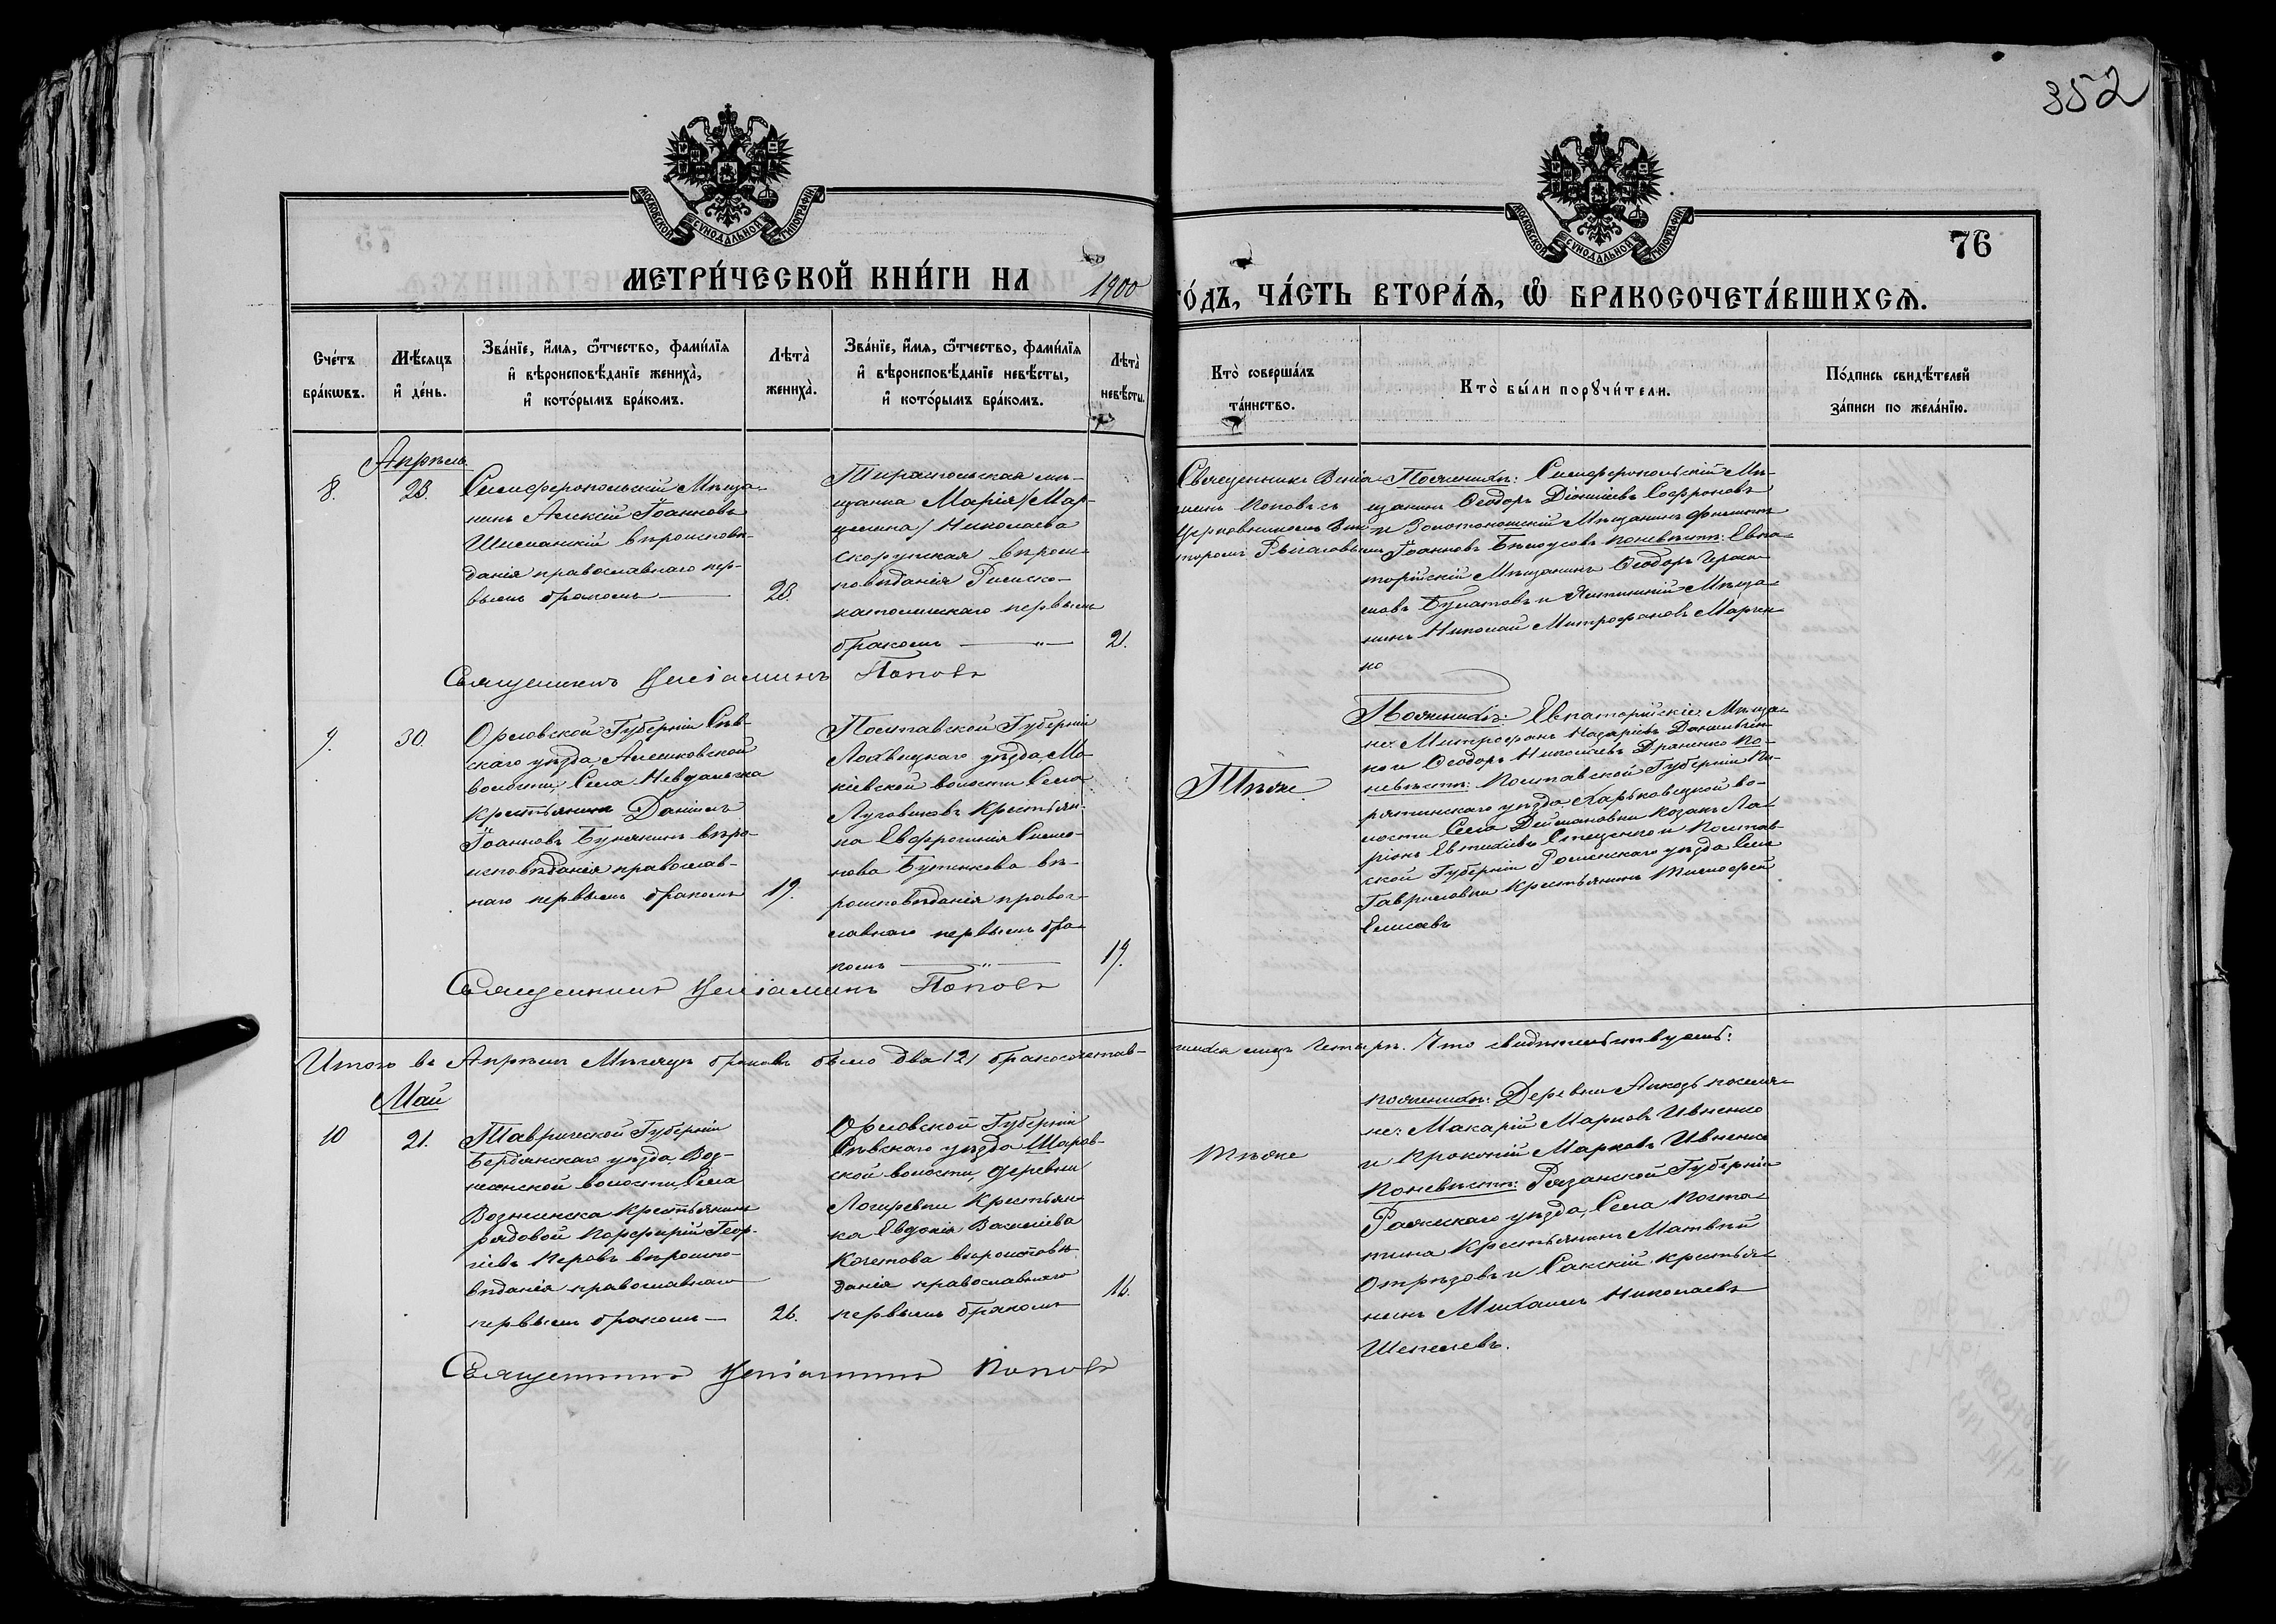 352
МОСКОВСКОЙ СУНОДАЛЬНОЙ ТИПОГРАФІИ
МОСКОВСКОЙ СУНОДАЛЬНОЙ ТИПОГРАФІИ
76
МЕТРИ́ЧЕСКОЙ КНИ́ГИ НА 1900
ГО́ДЪ, ЧА́СТЬ ВТОРА́Ѧ, Ѽ БРАКОСОЧЕТА́ВШИХСѦ.
Сче́тъ
бра́кѡвъ.
Мѣ́сяцъ
и҆ де́нь.
Зва́нїе, и҆́мя, ѻ҆́тчество, фами́лїя
и҆ вѣроисповѣ́данїе жениха̀,
и҆ кото́рымъ бра́комъ.
Лѣта̀
жениха̀.
Зва́нїе, и҆́мя, ѻ҆́тчество, фами́лїя
и҆ вѣроисповѣ́данїе невѣ́сты,
и҆ кото́рымъ бра́комъ.
Лѣта̀
невѣ́сты.
Кто̀ соверша́лъ
та́инство.
Кто̀ бы́ли порꙋчи́тели.
По́дпись свидѣ́телей
за́писи по жела́нїю.
Апрѣль
8.
23.
Симферопольскій Мѣща-
нинъ Алексій Іоанновъ
Шиманскій вѣроисповѣ-
данія православнаго пер-
вымъ бракомъ
28.
Тираспольская мѣ-
щанка Марія /Мар-
целина/ Николаева
Скорупская вѣроис-
повѣданія Римско-
католическаго первымъ
бракомъ
21.
Священникъ Веніа-
минъ Поповъ съ
Церковникомъ Вик-
торомъ
По женихѣ: Симферопольскій Мѣ-
щанинъ Ѳеодоръ Діонисіевъ Софроновъ
и Золотоношскій Мѣщанинъ Филиппъ
Іоанновъ Бѣлоусовъ по невѣстѣ: Евпа-
торійскій Мѣщанинъ Ѳеодоръ Гераси-
мовъ Булатовъ и Ялтинскій Мѣща-
нинъ Николай Митрофановъ Марчен-
ко
Священникъ Веніаминъ Поповъ
9.
30.
Орловской Губерніи Сѣв-
скаго уѣзда Алешковской
волости, Села Невдольска
Крестьянинъ Даніилъ
Іоанновъ Бунякинъ вѣро-
исповѣданія православ-
наго первымъ бракомъ
19.
Полтавской Губерніи
Лохвицкаго уѣзда, Ма-
кіевской волости Села
Луговиковъ Крестьян-
ка Евфросинія Симо-
нова Бутенкова вѣ-
роисповѣданія правос-
лавнаго первымъ бра-
комъ
19.
Тѣже
По женихѣ: Евпаторійскіе Мѣща-
не: Митрофанъ Назаріевъ Данильчен-
ко и Ѳеодоръ Николаевъ Драненко По
невѣстѣ: Полтавской Губерніи Пи-
рятинскаго уѣзда Харьковецкой во-
лости Села Деймановки Козакъ Ла-
ріонъ Евтихіевъ Стеценко и Полтав-
ской Губерніи Роменскаго уѣзда Села
Гавриловки Крестьянинъ Тимофей
Елисеевъ
Священникъ Веніаминъ Поповъ
Итого въ Апрѣлѣ Мѣсяцѣ браковъ было два /2/ бракосочетав-
шихся лицъ Четыре. Что свидѣтельствуемъ:
Май
10
21.
Таврической Губерніи
Бердянскаго уѣзда, Воз-
несенской волости, Села
Вознесенска Крестьянинъ
рядовой Порфирій Геор-
гіевъ Перовъ вѣроиспо-
вѣданія православнаго
первымъ бракомъ
26.
Орловской Губерніи
Сѣвскаго уѣзда Шаров-
ской волости, деревни
Логиревки Крестьян-
ка Евдокія Васильева
Кочетова вѣроисповѣ-
данія православнаго
первымъ бракомъ
16.
Тѣже
По женихѣ: Деревни поселя-
не: Макарій Марковъ Ивненко
и Прокопій Марковъ Ивненко
По невѣстѣ: Рязанской Губерніи
Ряжскаго уѣзда, Села
Крестьянинъ Матвѣй
Отрѣзовъ и Сакскій крестья-
нинъ Михаилъ Николаевъ
Шепелевъ.
Священникъ Веніаминъ Поповъ